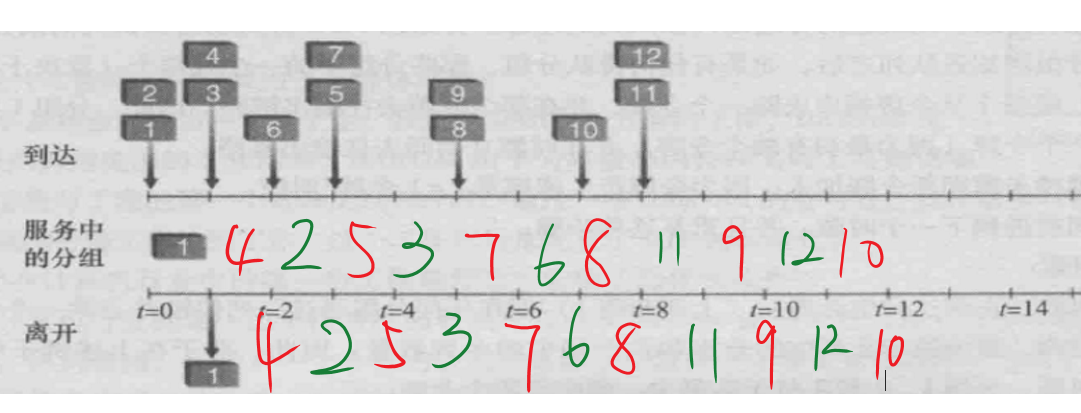 4 7 12
2 3 5 9 11
1 6 8 10
到达
服务中
的分组
1 4 2 5 3 7 6 8 11 9 12 10
t=0 t=2 t=4 t=6 t=8 t=10 t=12 t=14
离开
1 4 2 5 3 7 6 8 11 9 12 10